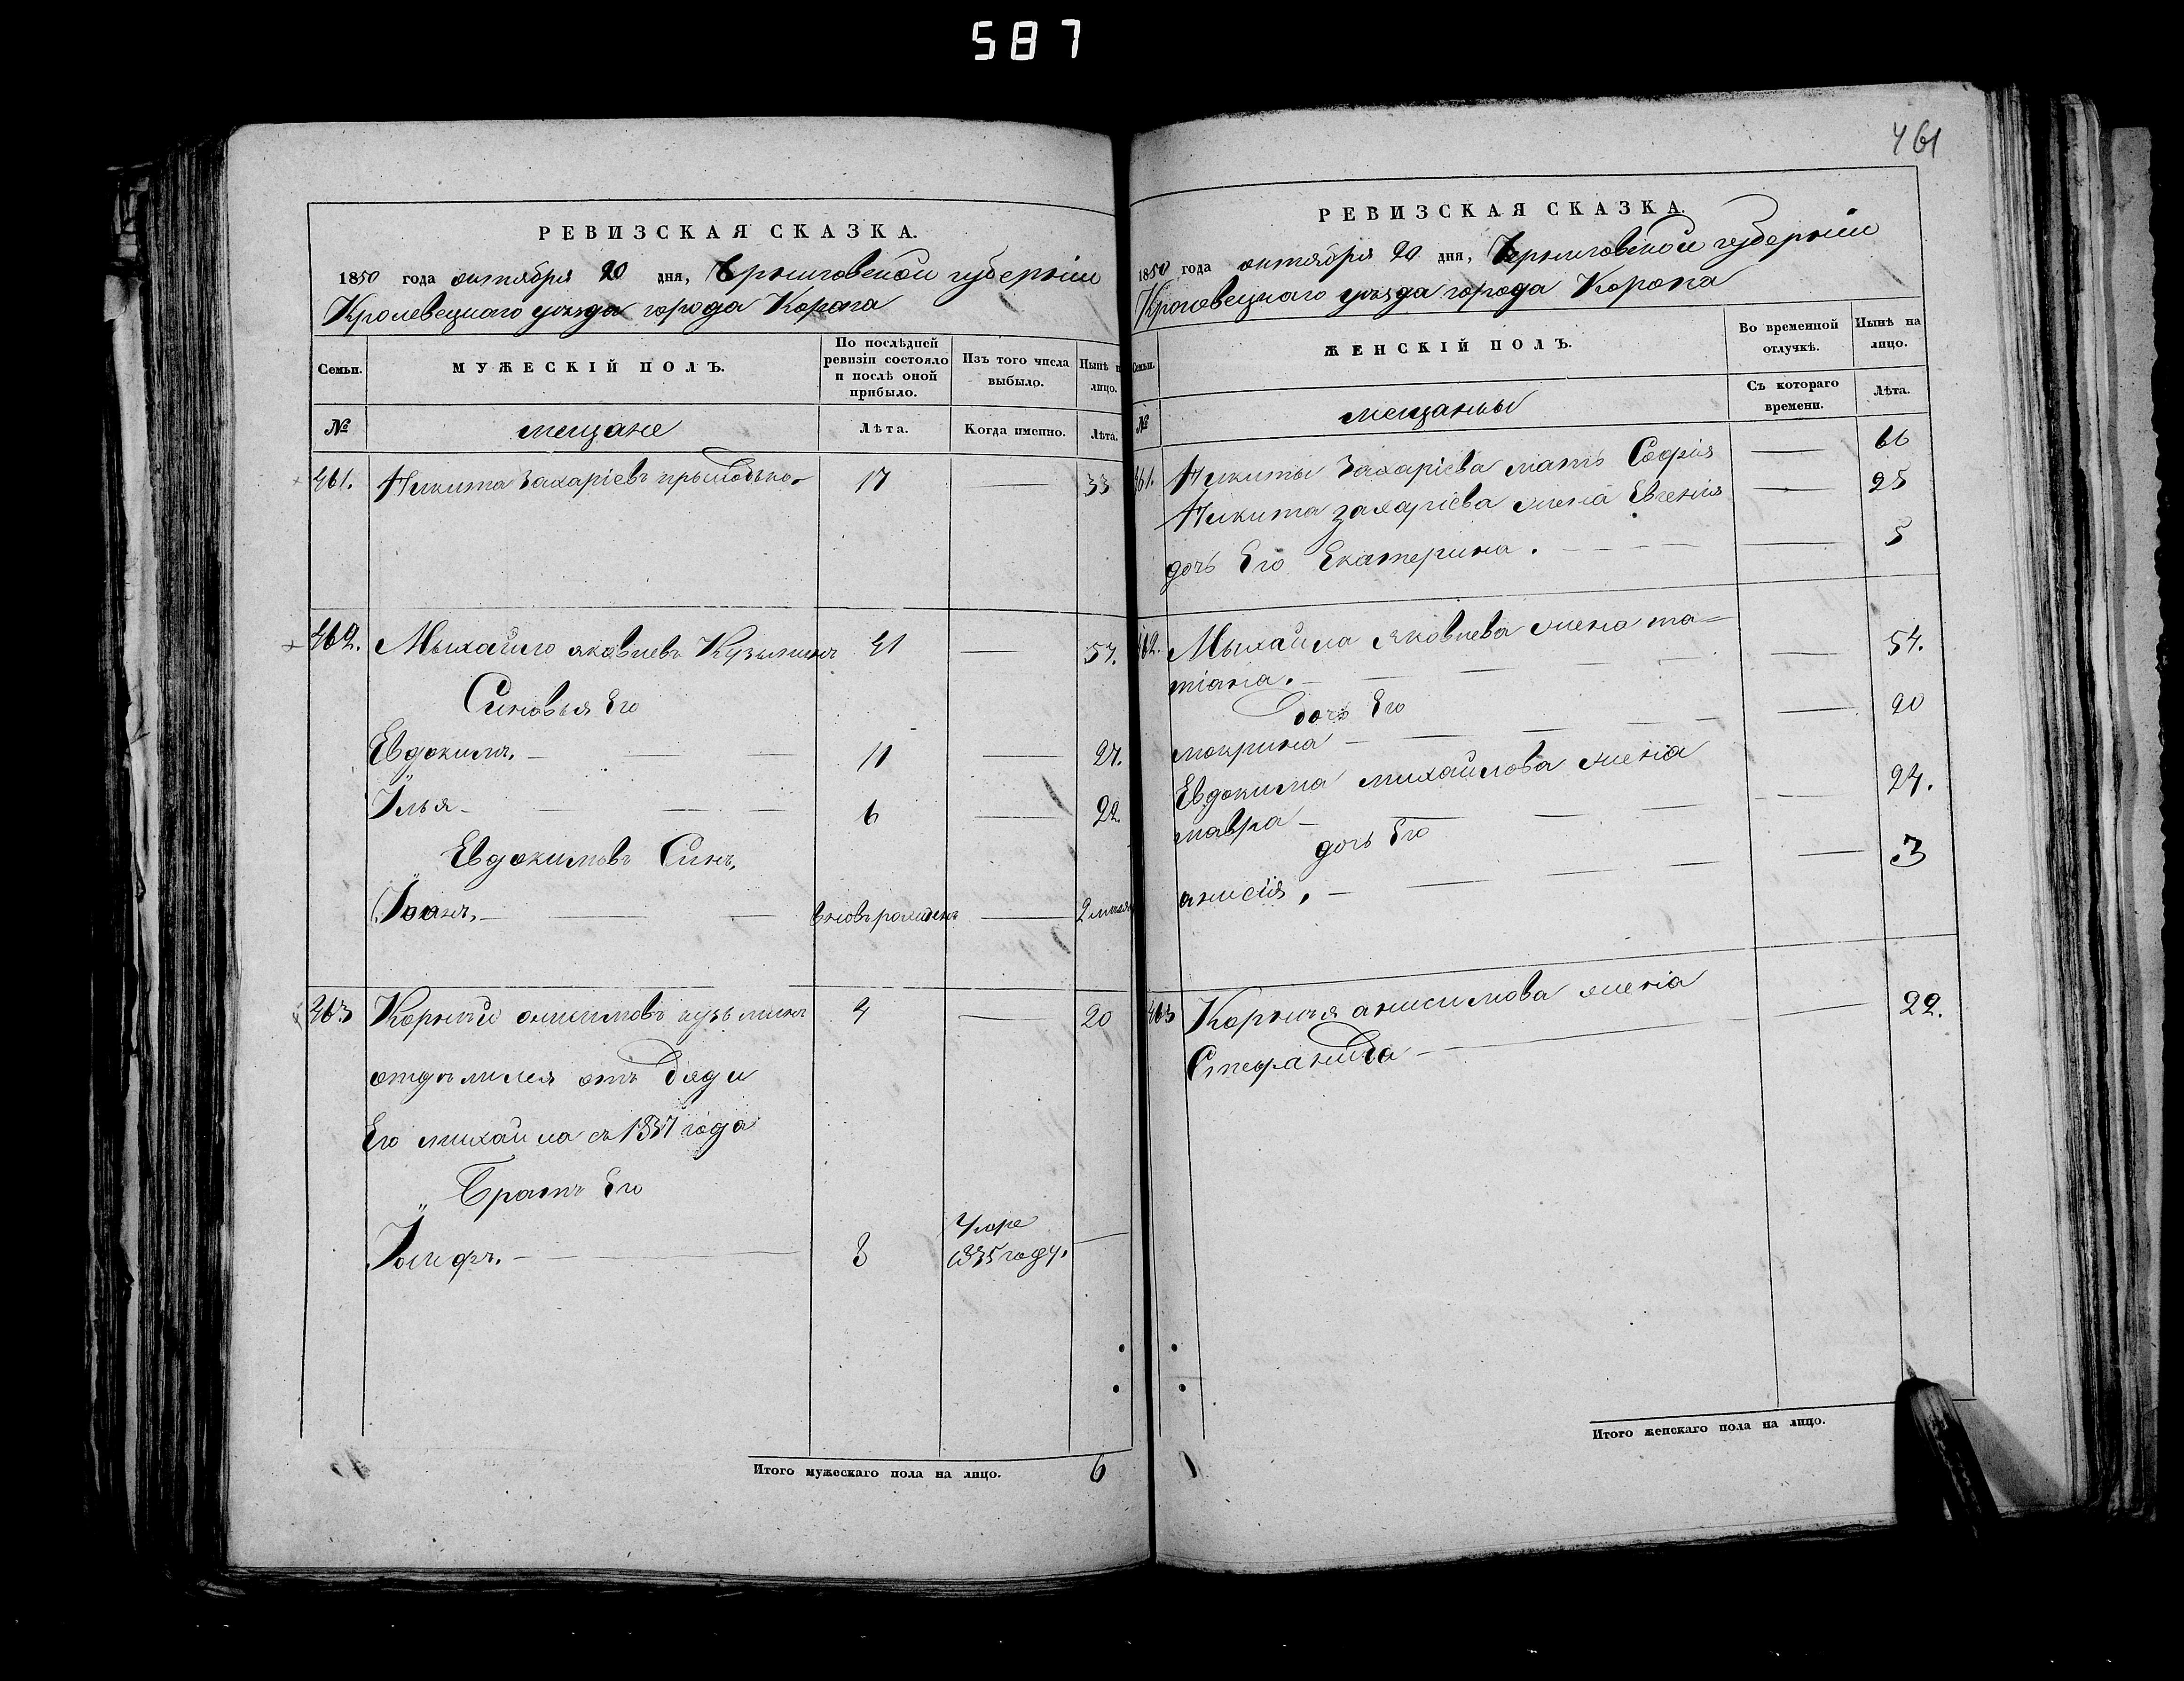 587
461
РЕВИЗСКАЯ СКАЗКА.
1850 года октября 20 дня, Черниговской губерніи
Кролевецкаго уѣзда города Коропа
Семьи.
МУЖЕСКІЙ ПОЛЪ.
По послѣдней ревизіи состояло и послѣ оной прибыло.
Изъ того числа выбыло.
Нынѣ н лицо.
№
мещане
Лѣта.
Когда именно.
Лѣта.
461. Никита Захаріевъ 17 — 33
462. Михайло яковлевъ Кузьминъ 41 — 57.
Синовья Его
Евдокимъ. — 11 — 27.
Илья — 6 — 22.
Евдокимовъ Синъ,
Іоанъ, — вновь рожденъ — 2
463 Корнѣй онисимовъ кузьминъ 4 — 20
отдѣлился отъ дяди
Его михайла съ 1837 года
Братъ Его
Іосифъ. — 3 Умре 1835 году. —
Итого мужескаго пола на лицо. 6
РЕВИЗСКАЯ СКАЗКА.
1850 года октября 20 дня, Черниговской губерніи
Кролевецкаго уѣзда города Коропа
Семьи.
ЖЕНСКІЙ ПОЛЪ.
Во временной отлучкѣ.
Нынѣ на лицо.
Съ котораго времени.
Лѣта.
№
мещанки
461. Никиты Захаріева мать Софія — 66
Никита захаріева жена Евгенія — 25
дочь Его Екатерина. — 5
462. Михайла яковлева жена та-
тіана. — 54.
дочь Его
мокрина — 20
Евдокима михайлова жена
мавра — 24.
дочь Его
анисія, — 3
463 Корнѣя анисимова жена
Стефанида — 22.
Итого женскаго пола на лицо.